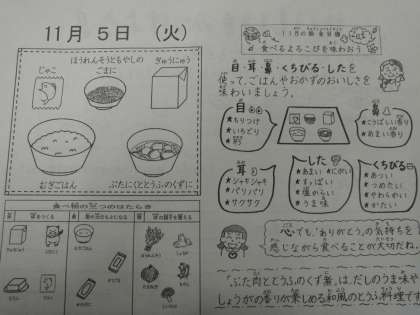 11月 5日 （火）
ほうれんそうともやしの
ごまに
じゃこ
ぎゅうにゅう
むぎごはん
ぶたにくととうふのくずに
食べ物の三つのはたらき
11月の給食目標
食べるよろこびを味わおう
目・耳・鼻・くちびる・したを
使って、ごはんやおかずのおいしさを
味わいましょう。
目
★もりつけ
★いろどり
★形
鼻
★こうばしい香り
★あまい香り
耳
★シャキシャキ
★パリパリ
★サクサク
した
★あまい ★にがい
★すっぱい
★塩からい
★うま味
くちびる
★あつい
★つめたい
★やわらかい
★かたい
心でも「ありがとう」の気持ちを
感じながら食べることが大切だね。
「ぶた肉ととうふのくず煮」は、だしのうま味や
しょうがの香りが楽しめる和風のとうふ料理で